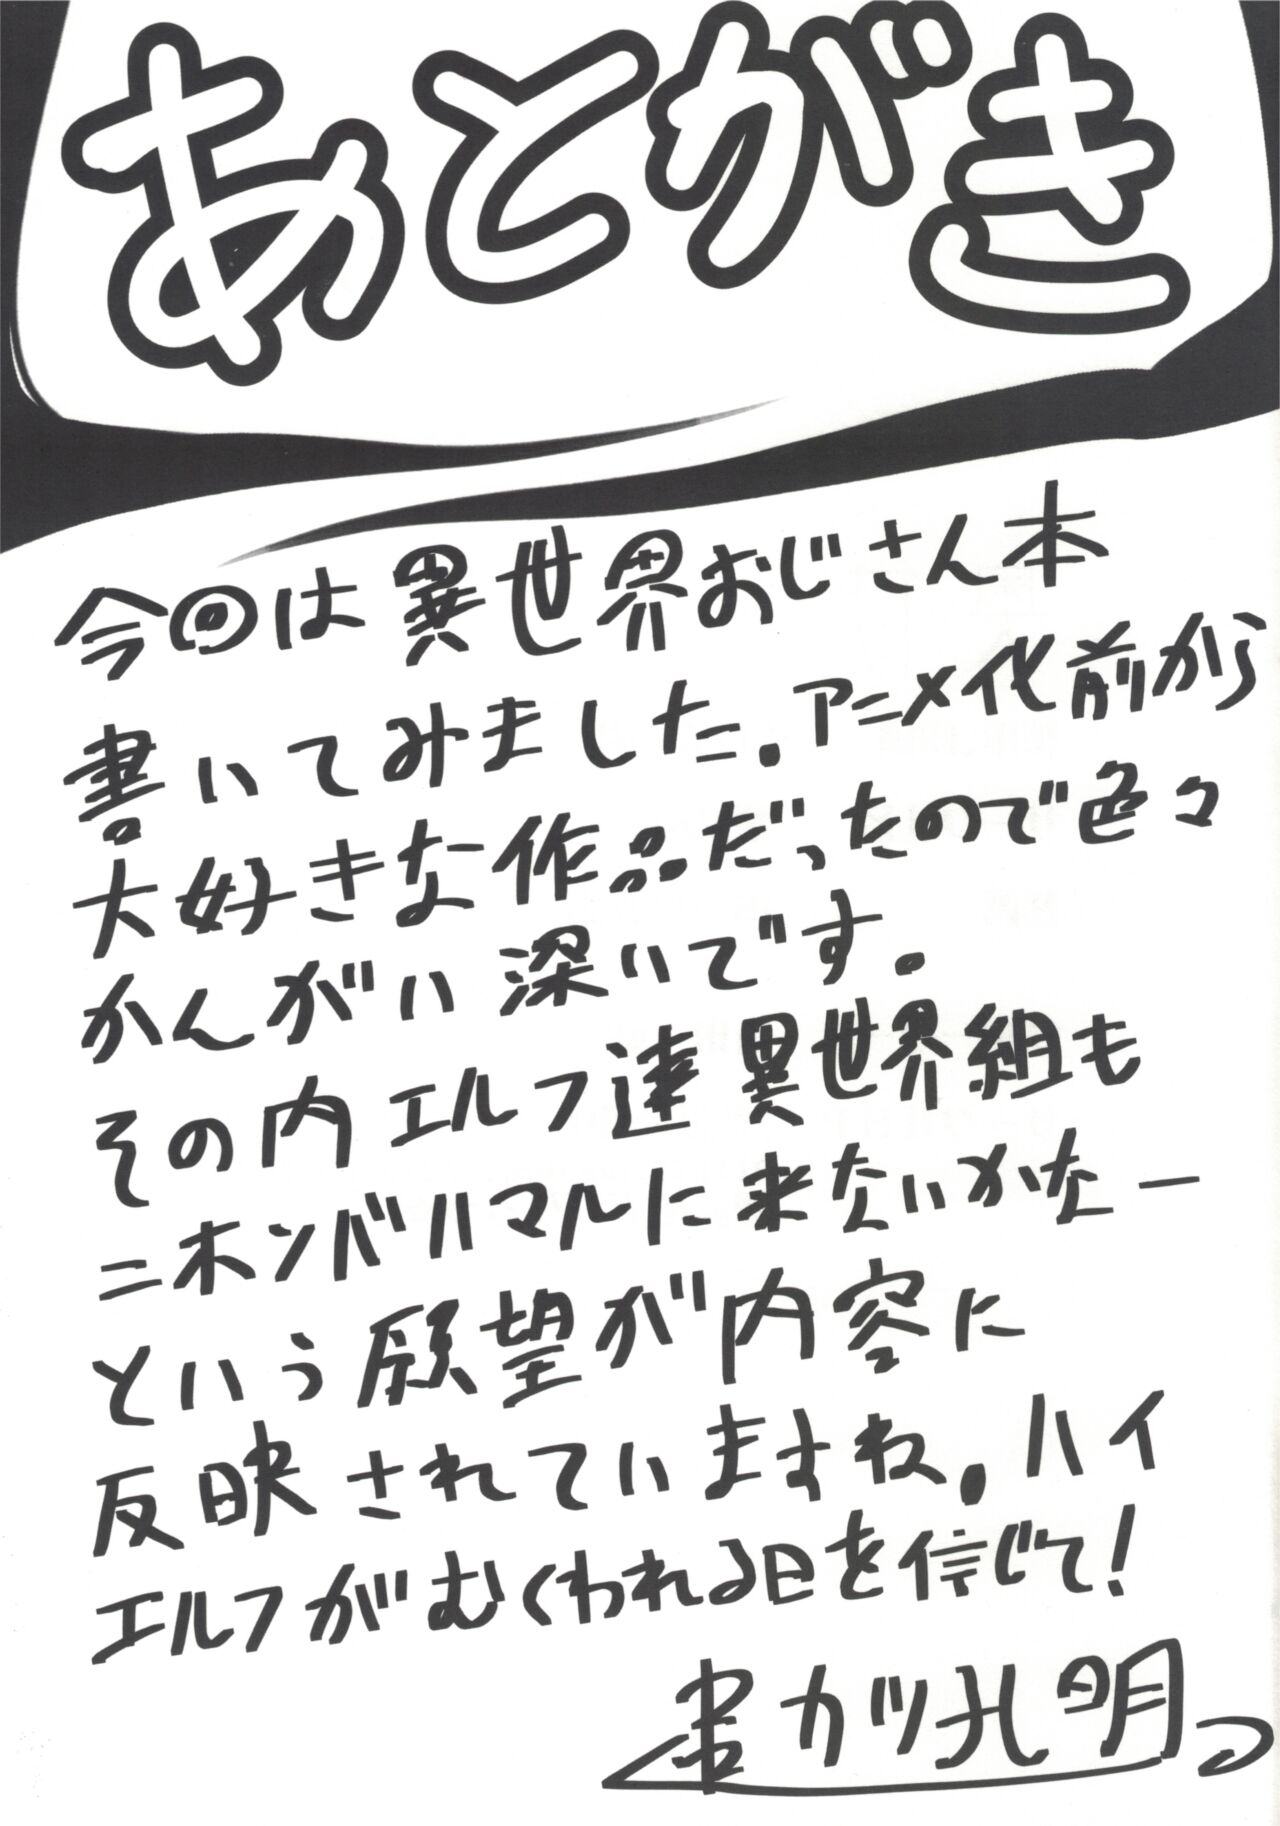 あとがき
今回は異世界おじさん本
書いてみました。アニメ化前から
大好きな作品だったので色々
かんがい深いです。
その内エルフ達異世界組も
ニホンバハマルに来ないかなー
という願望が内容に
反映されていますね。ハイ
エルフがむくわれる日を信じて!
串カツ孔明